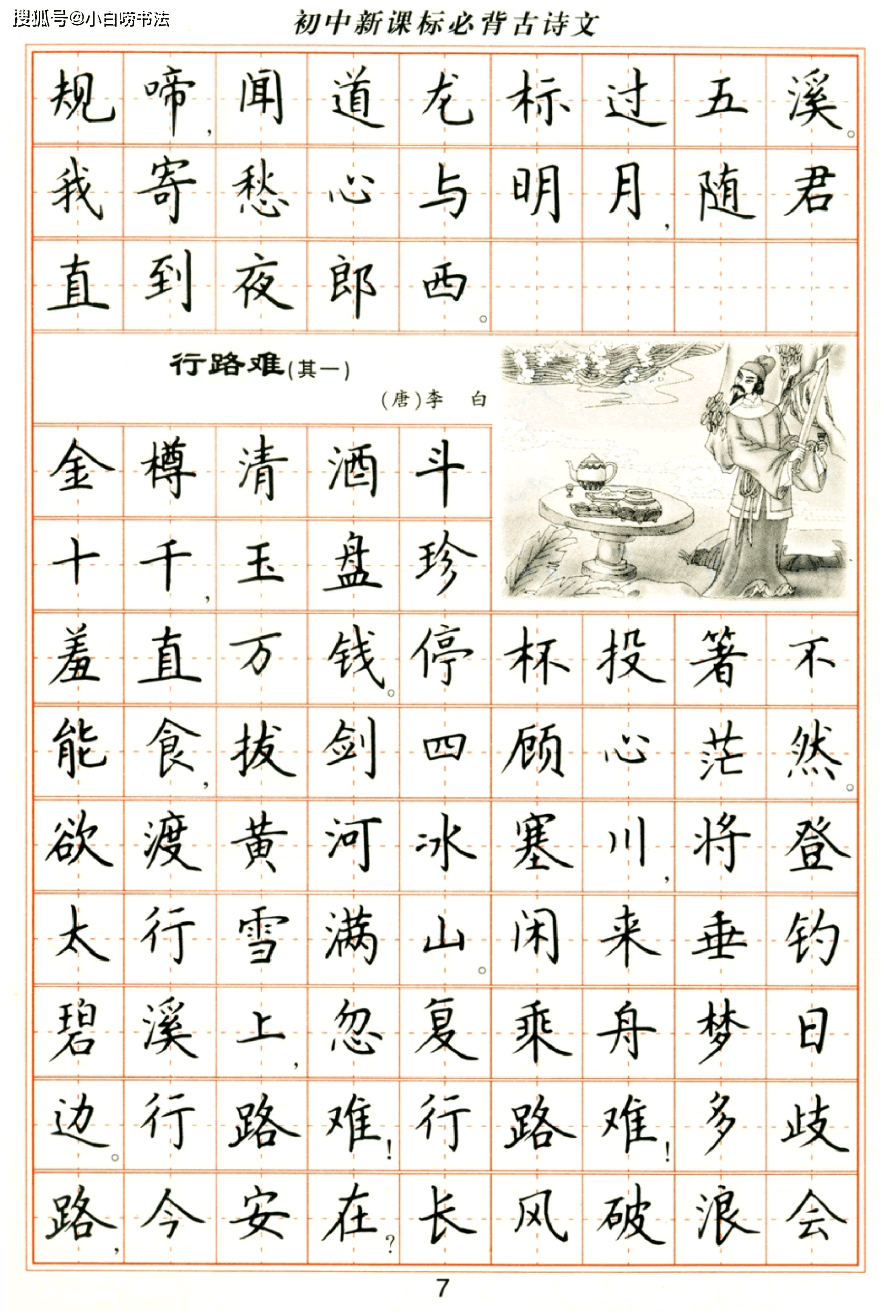 搜狐号@小白唠书法
初中新课标必背古诗文
规啼,闻道龙标过五溪。
我寄愁心与明月,随君
直到夜郎西。
行路难(其一)
(唐)李 白
金樽清酒斗
十千,玉盘珍
羞直万钱。停杯投箸不
能食,拔剑四顾心茫然。
欲渡黄河冰塞川,将登
太行雪满山。闲来垂钓
碧溪上,忽复乘舟梦日
边。行路难!行路难!多歧
路,今安在?长风破浪会
7